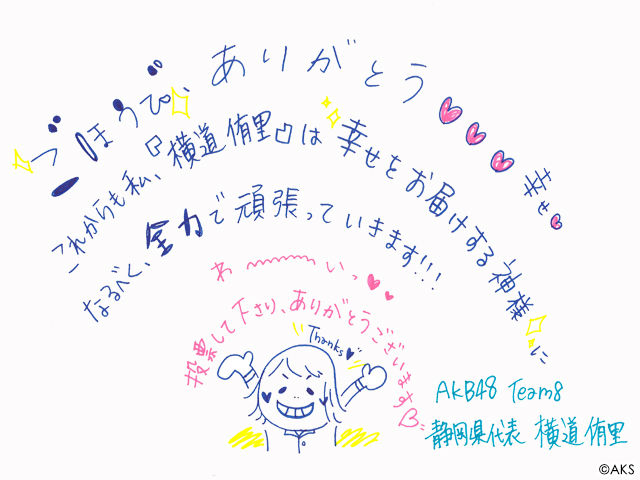 ごほうび、ありがとう 幸せ
これからも私、『横道侑里』は幸せをお届けする神様に
なるべく、全力で頑張っていきます!!!
わ〜〜〜いっ
投票して下さり、ありがとうございます
Thanks
AKB48 Team8
静岡県代表 横道侑里
©AKS